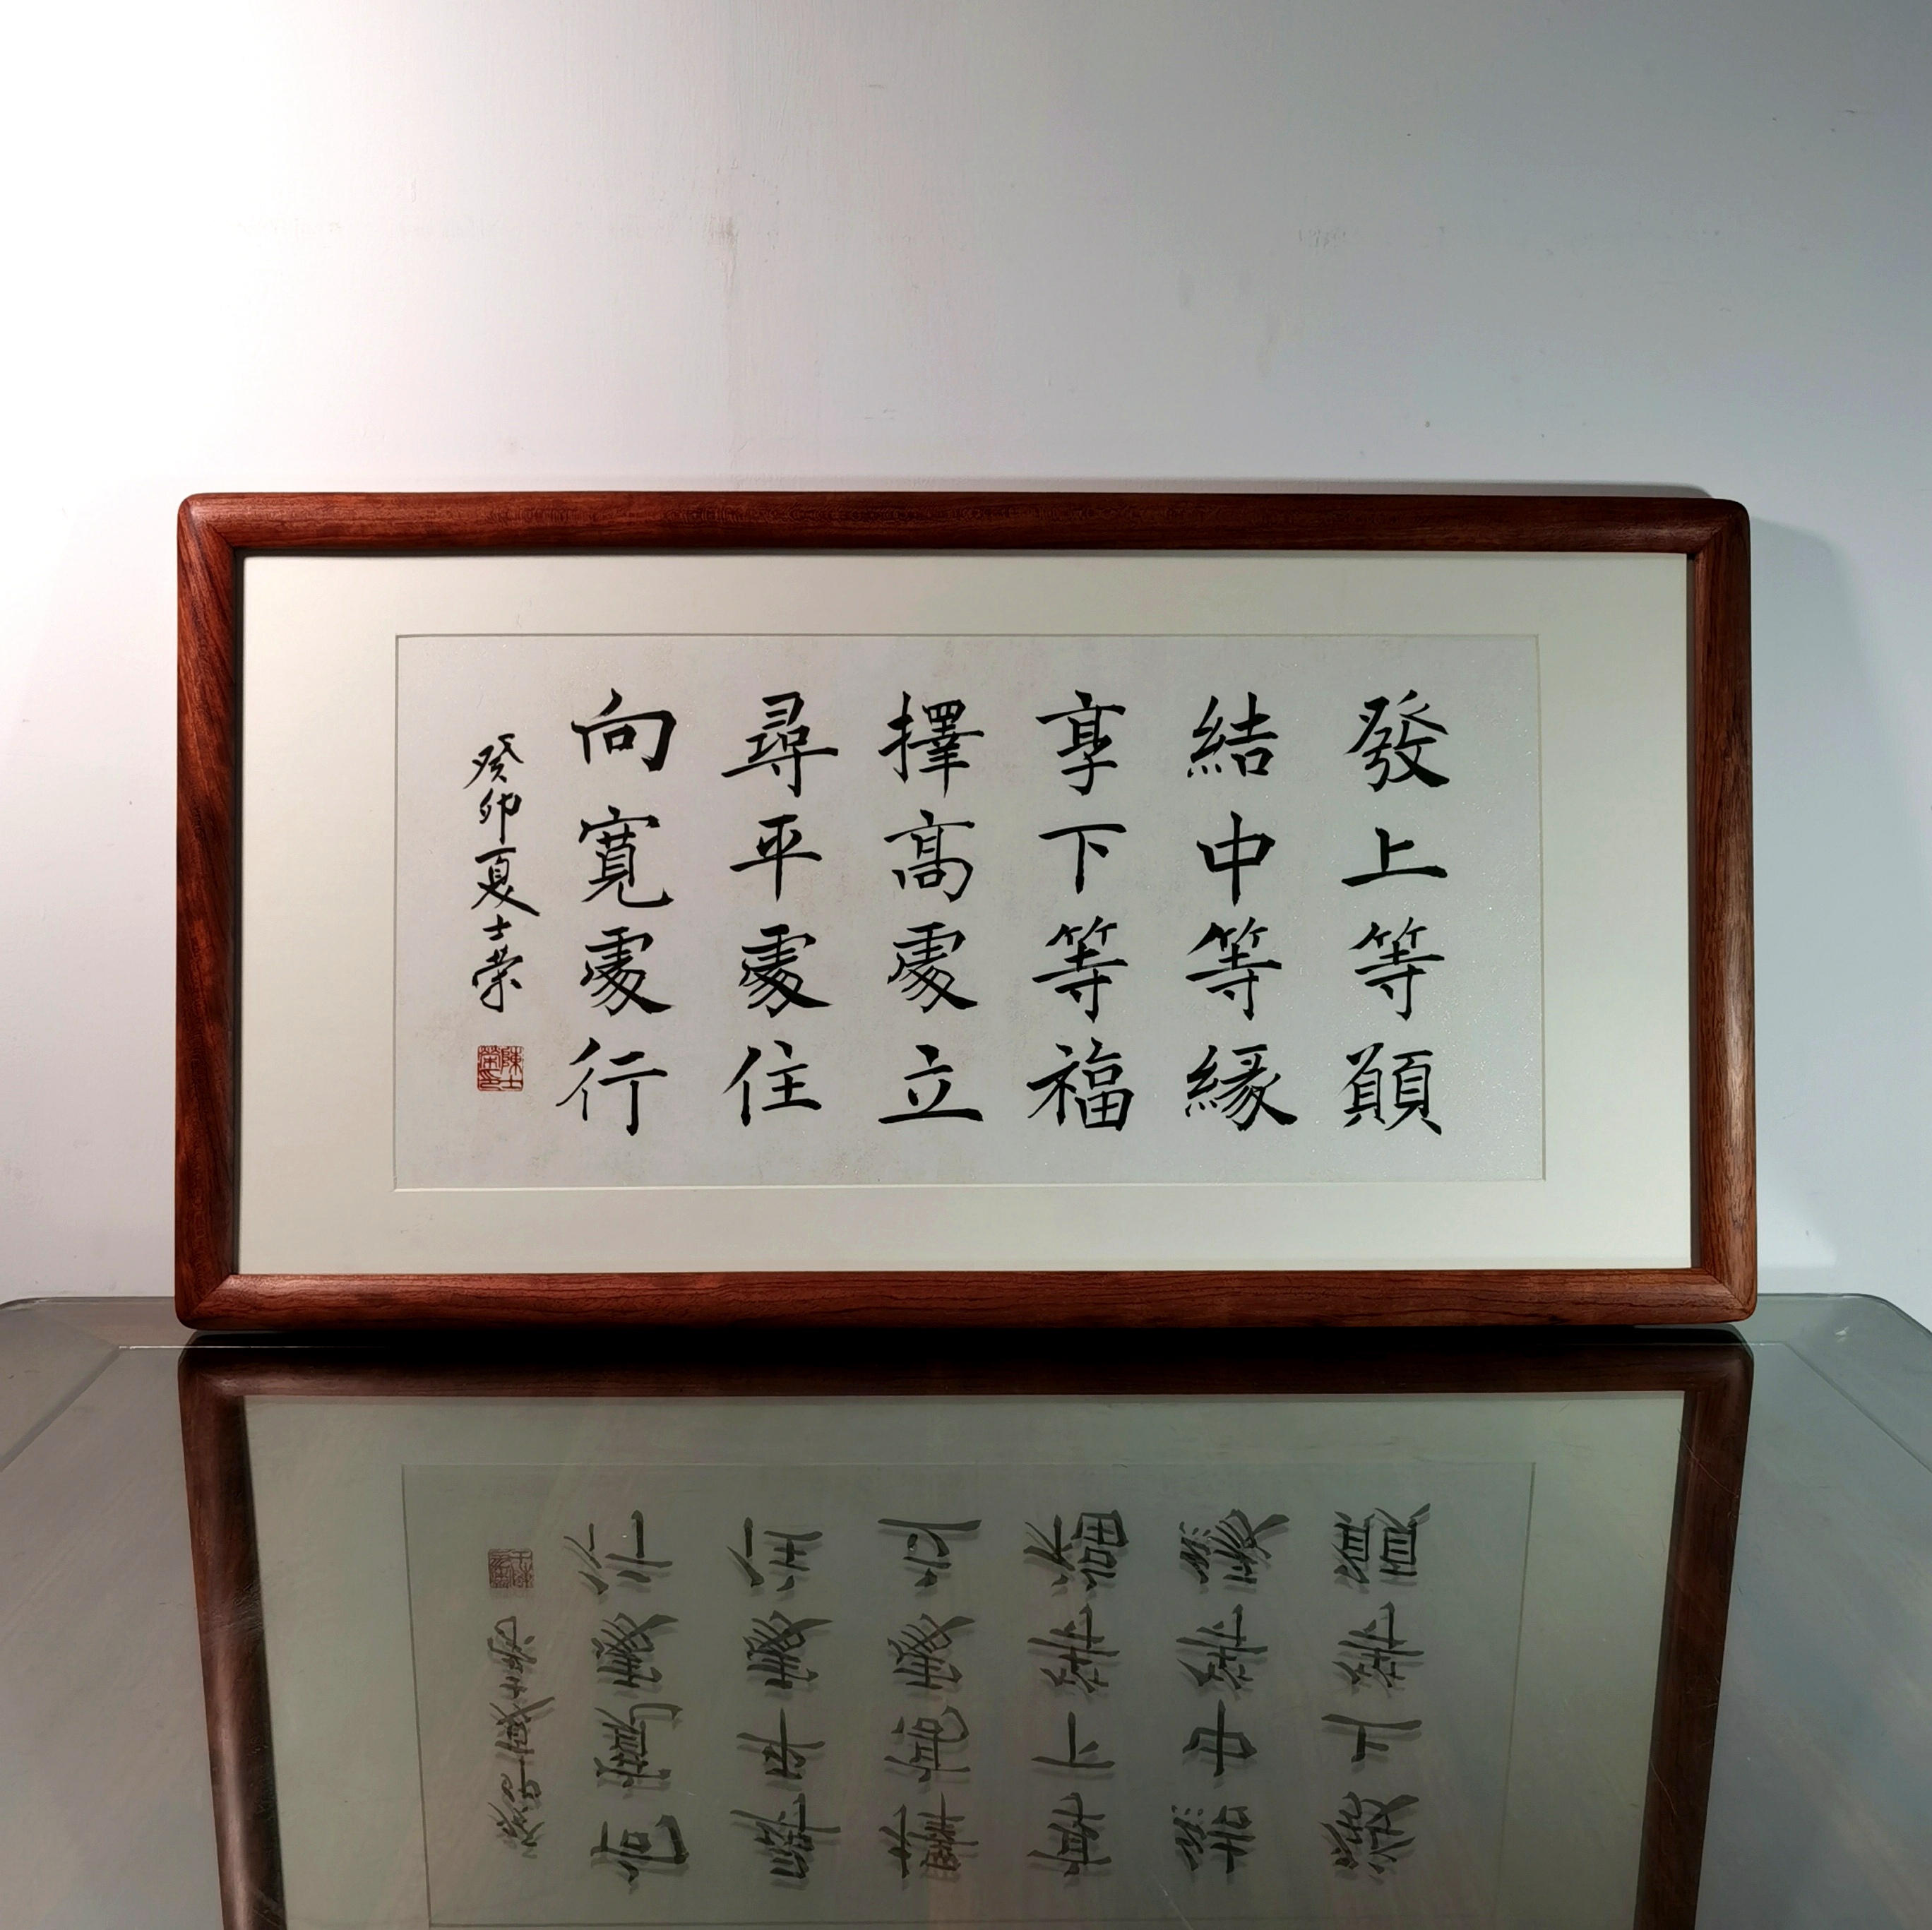 發上等願
結中等緣
享下等福
擇高處立
尋平處住
向寬處行
癸卯夏士榮
陳士榮印